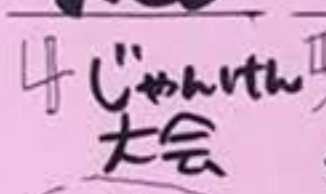 4 じゃんけん
大会